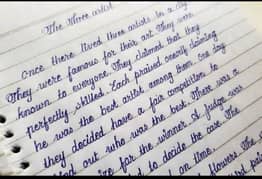 The three artist
Once there lived three artists. In a city
They were famous for their art. They were
known to everyone. They claimed that they
perfectly skilled. Each praised onerly claiming
he was the best artist among them. one day
they decided have a fair competition to
ed out who was the best. There was a
for the winner. A judge was
ed to decide the case. The
on time.
flowers. The